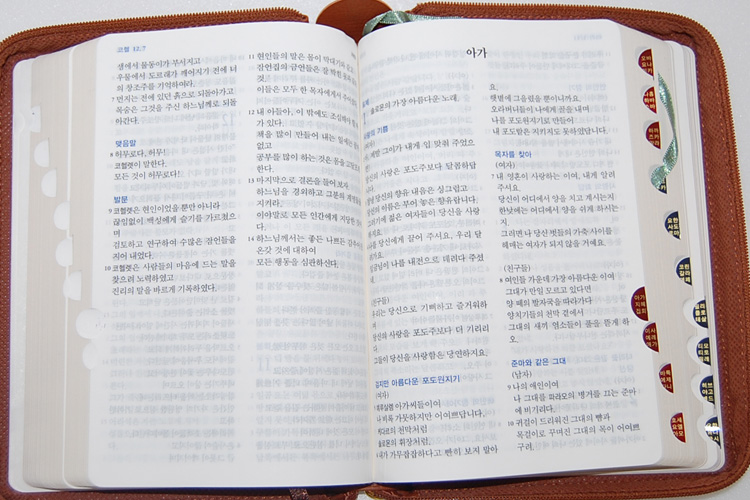 코헬 12,7
샘에서 물동이가 부서지고
우물에서 도르래가 깨어지기 전에 너
의 창조주를 기억하여라.
7 먼지는 전에 있던 흙으로 되돌아가고
목숨은 그것을 주신 하느님께로 되돌
아간다.
맺음말
8 허무로다, 허무!
코헬렛이 말한다.
모든 것이 허무로다!
발문
9 코헬렛은 현인이었을 뿐만 아니라
끊임없이 백성에게 슬기를 가르쳤으
며
검토하고 연구하여 수많은 잠언들을
지어 내었다.
10 코헬렛은 사람들의 마음에 드는 말을
찾으려 노력하였고
진리의 말을 바르게 기록하였다.
11 현인들의 말은 몰이 막대기와
잠언집의 금언들은 잘 박힌
것
이들은 모두 한 목자에게서
12 내 아들아, 이 밖에도 조심해야
가 있다.
책을 많이 만들어 내는 일에는
없고
공부를 많이 하는 것은 몸을
한다.
13 마지막으로 결론을 들어 보자.
하느님을 경외하고 그분의 계명
지켜라.
이야말로 모든 인간에게 지당한
다.
14 하느님께서는 좋든 나쁘든
온갖 것에 대하여
모든 행동을 심판하신다.
아가
솔로몬의 가장 아름다운 노래.
기쁨
그이가 내게 입 맞춰 주었으
사랑은 포도주보다 달콤하답
당신의 향유 내음은 싱그럽고
당신의 이름은 부어 놓은 향유랍니다.
그러기에 젊은 여자들이 당신을 사랑
나를 당신에게 끌어 주셔요, 우리 달
려가요.
임금님이 나를 내전으로 데려다 주셨
네.
(친구들)
우리는 당신으로 기뻐하고 즐거워하
며
당신의 사랑을 포도주보다 더 기리리
다.
그들이 당신을 사랑함은 당연하지요.
검지만 아름다운 포도원지기
(여자)
예루살렘 아가씨들이여
나 비록 가뭇하지만 어여쁘답니다,
케다르의 천막처럼,
솔로몬의 휘장처럼.
내가 가무잡잡하다고 빤히 보지 말아
요.
햇볕에 그을렸을 뿐이니까요.
오라버니들이 나에게 골을 내며
나를 포도원지기로 만들어
내 포도밭은 지키지도 못하였답니다.
목자를 찾아
(여자)
7 내 영혼이 사랑하는 이여, 내게 알려
주셔요.
당신이 어디에서 양을 치고 계시는지
한낮에는 어디에서 양을 쉬게 하시는
지.
그러면 나 당신 벗들의 가축 사이를
헤매는 여자가 되지 않을 거예요.
(친구들)
8 여인들 가운데 가장 아름다운 이여
그대가 만일 모르고 있다면
양 떼의 발자국을 따라가다
양치기들의 천막 곁에서
그대의 새끼 염소들이 풀을 뜯게 하
오.
준마와 같은 그대
(남자)
9 나의 애인이여
나 그대를 파라오의 병거를 끄는 준마
에 비기리다.
10 귀걸이 드리워진 그대의 뺨과
목걸이로 꾸며진 그대의 목이 어여쁘
구려.